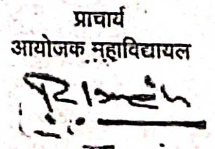 प्राचार्य
आयोजक महाविद्यायल